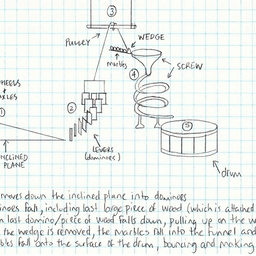 ③
PULLEY
WEDGE
marbles
SCREW
④
WHEELS
& AXLES
②
①
LEVERS
(dominoes)
⑤
INCLINED
PLANE
drum
moves down the inclined plane into dominoes
fall, including last large piece of wood (which is attached
last domino/piece of wood falls down, pulling up on the w
the wedge is removed, the marbles fall into the funnel and
fall onto the surface of the drum, bouncing and making